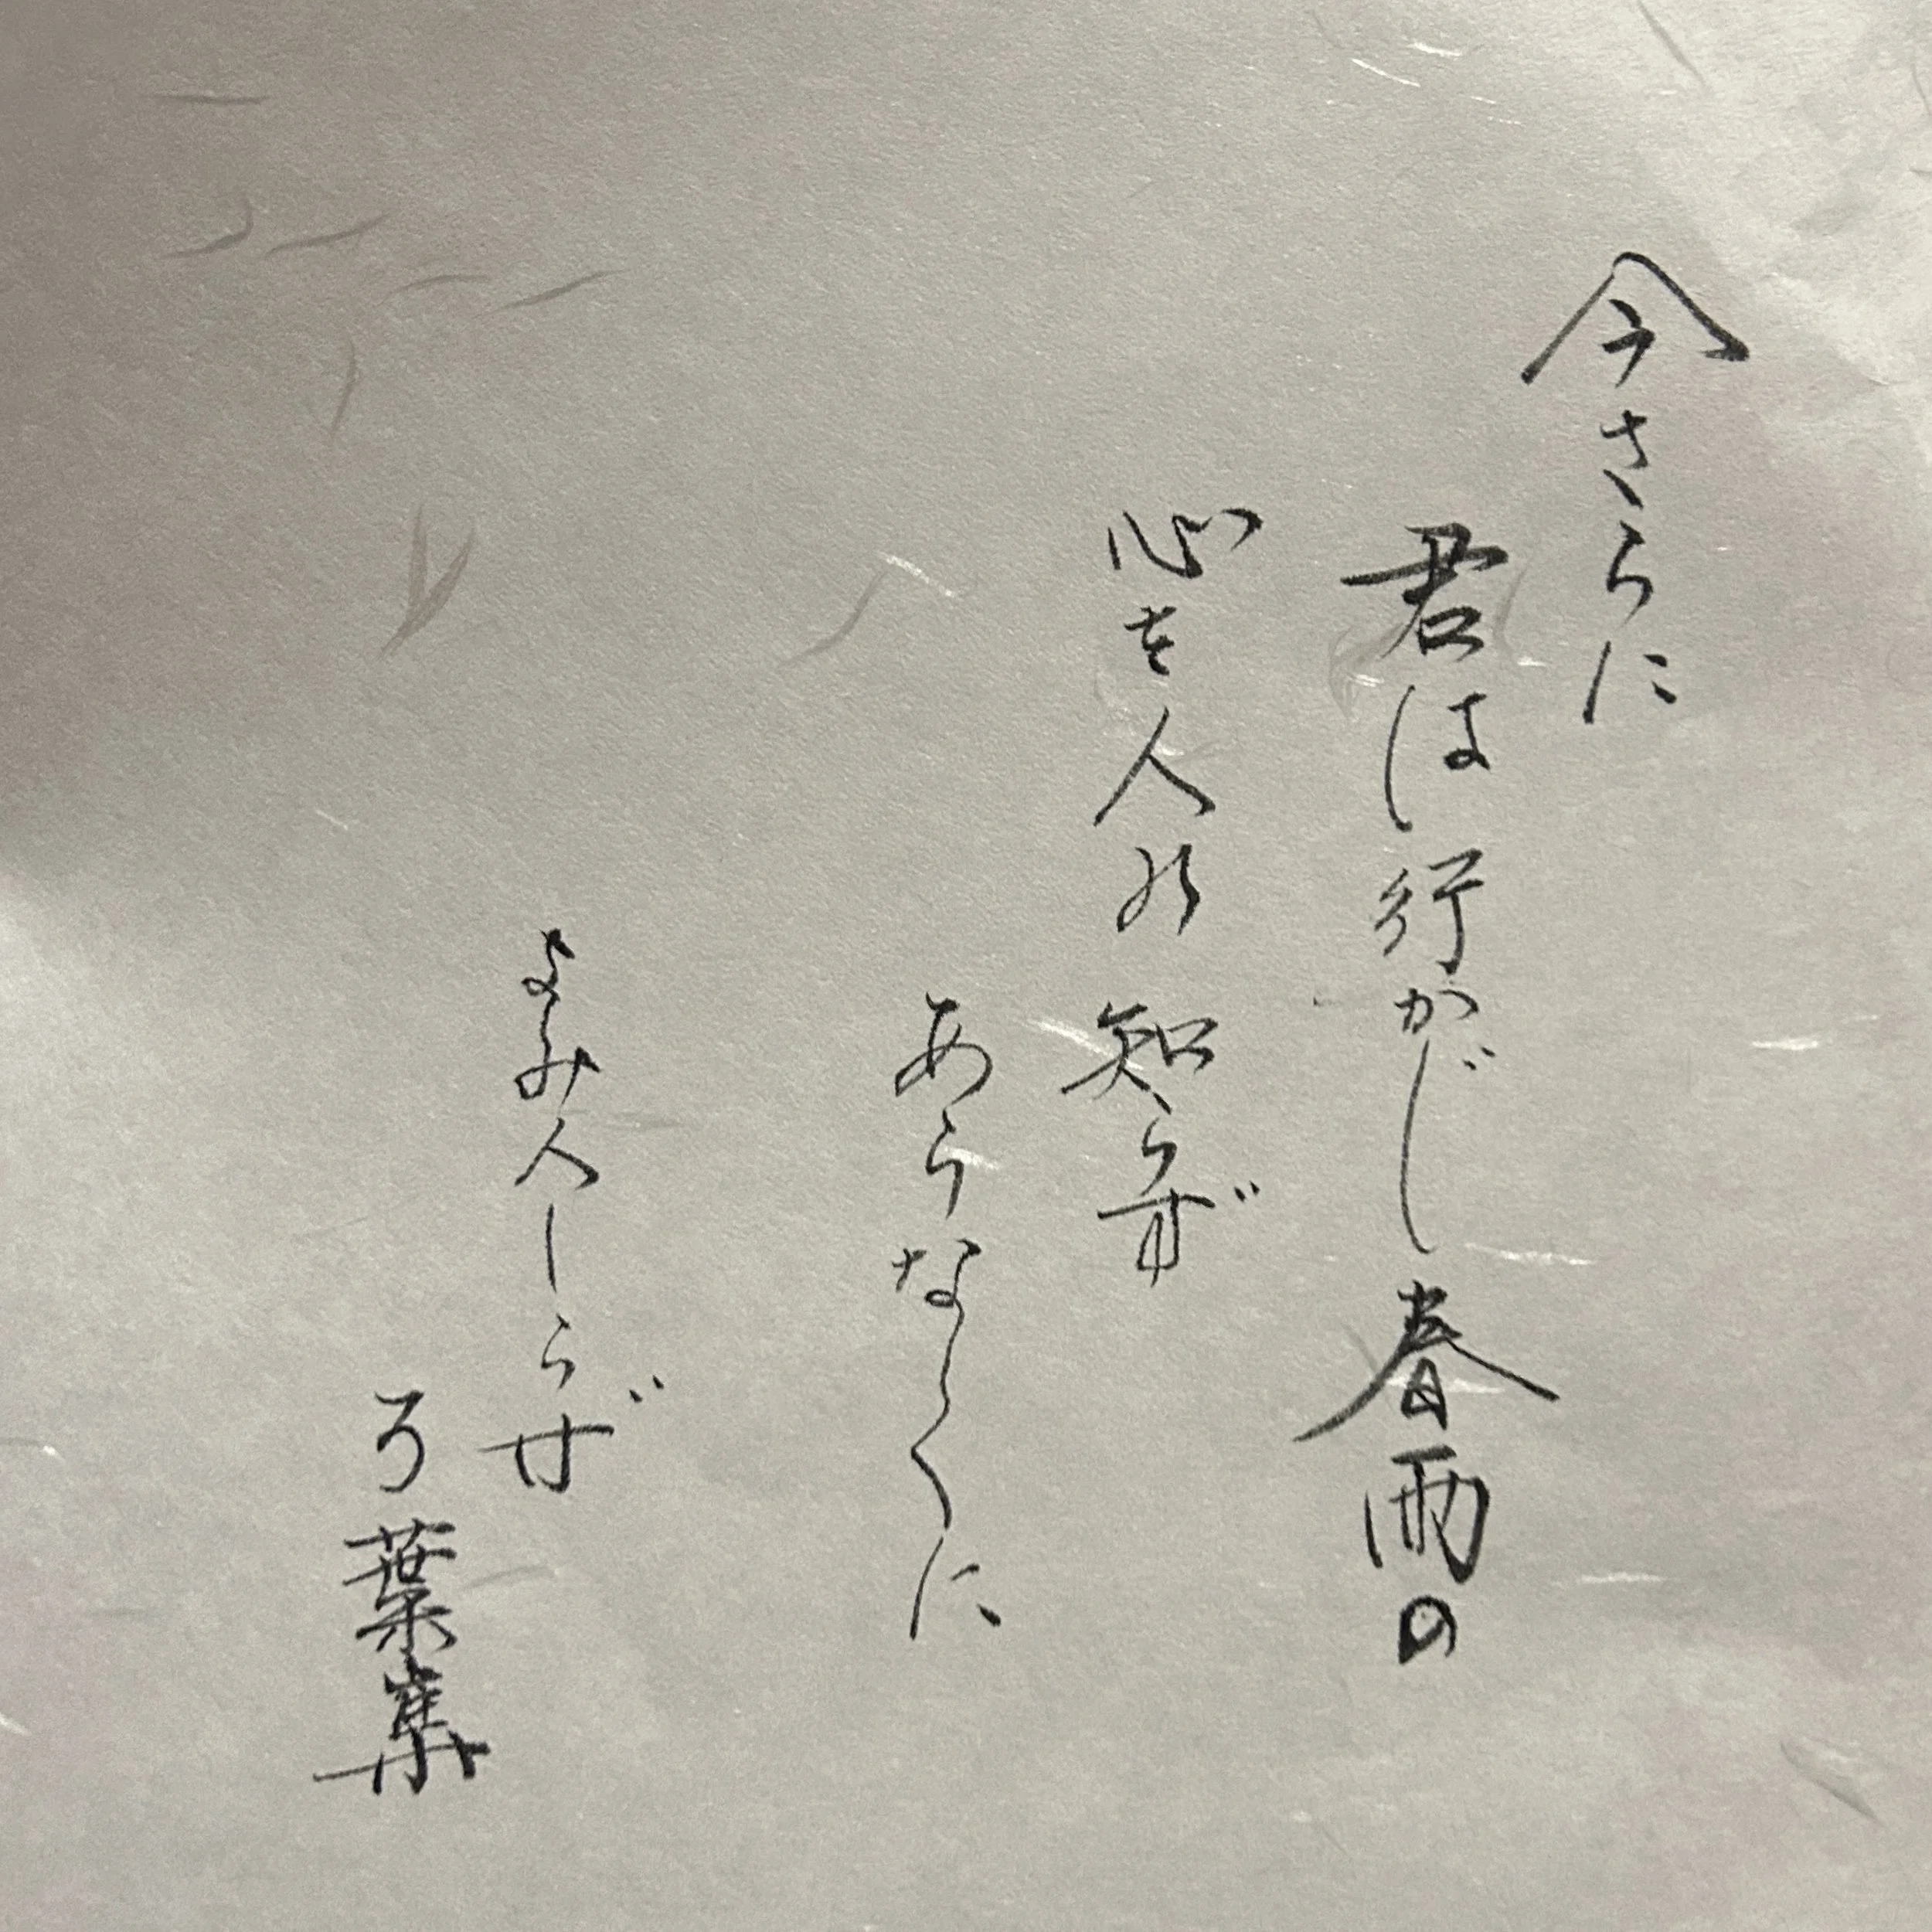 今さらに
君は行かじ春雨の
心を人の知らず
あらなくに
よみ人しらず
万葉集